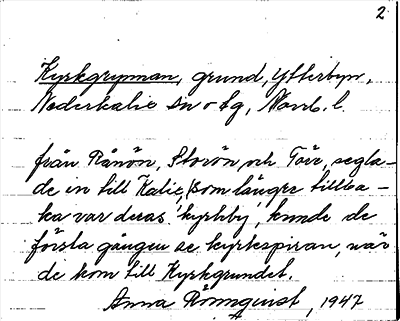 2
Kyrkgrynnan, grund, Ytterbyn,
Nederkalix sn o tg, Norrb. l.
från Rånön, Storön, och Töre, segla-
de in till Kalix, (som längre tillba-
ka var deras 'kyrkby', kunde de
första gången se kyrkspiran, när
de kom till Kyrkgrundet.
Anna Rönnquist, 1947